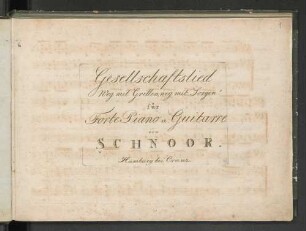 Gesellschaftslied
Weg mit Grillen, weg mit Sorgen
Für
Forte Piano u Guitarre
von
SCHNOOR.
Hamburg bei Cranz.